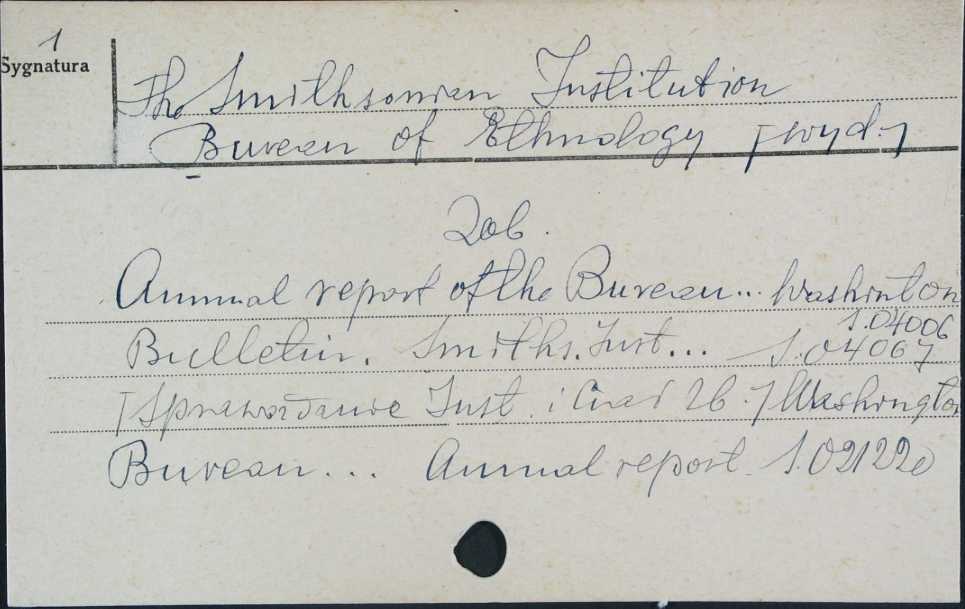 1
Sygnatura
The Smithsonian Institution
Bureau of Ethnology [wyd.]
Zob.
Annual report of the Bureau... Washinton
S.04006
Bulletin. Smiths. Inst... S.04067
[Sprawozdanie Inst. i 26.] Washington
Bureau... Annual report. S.02122